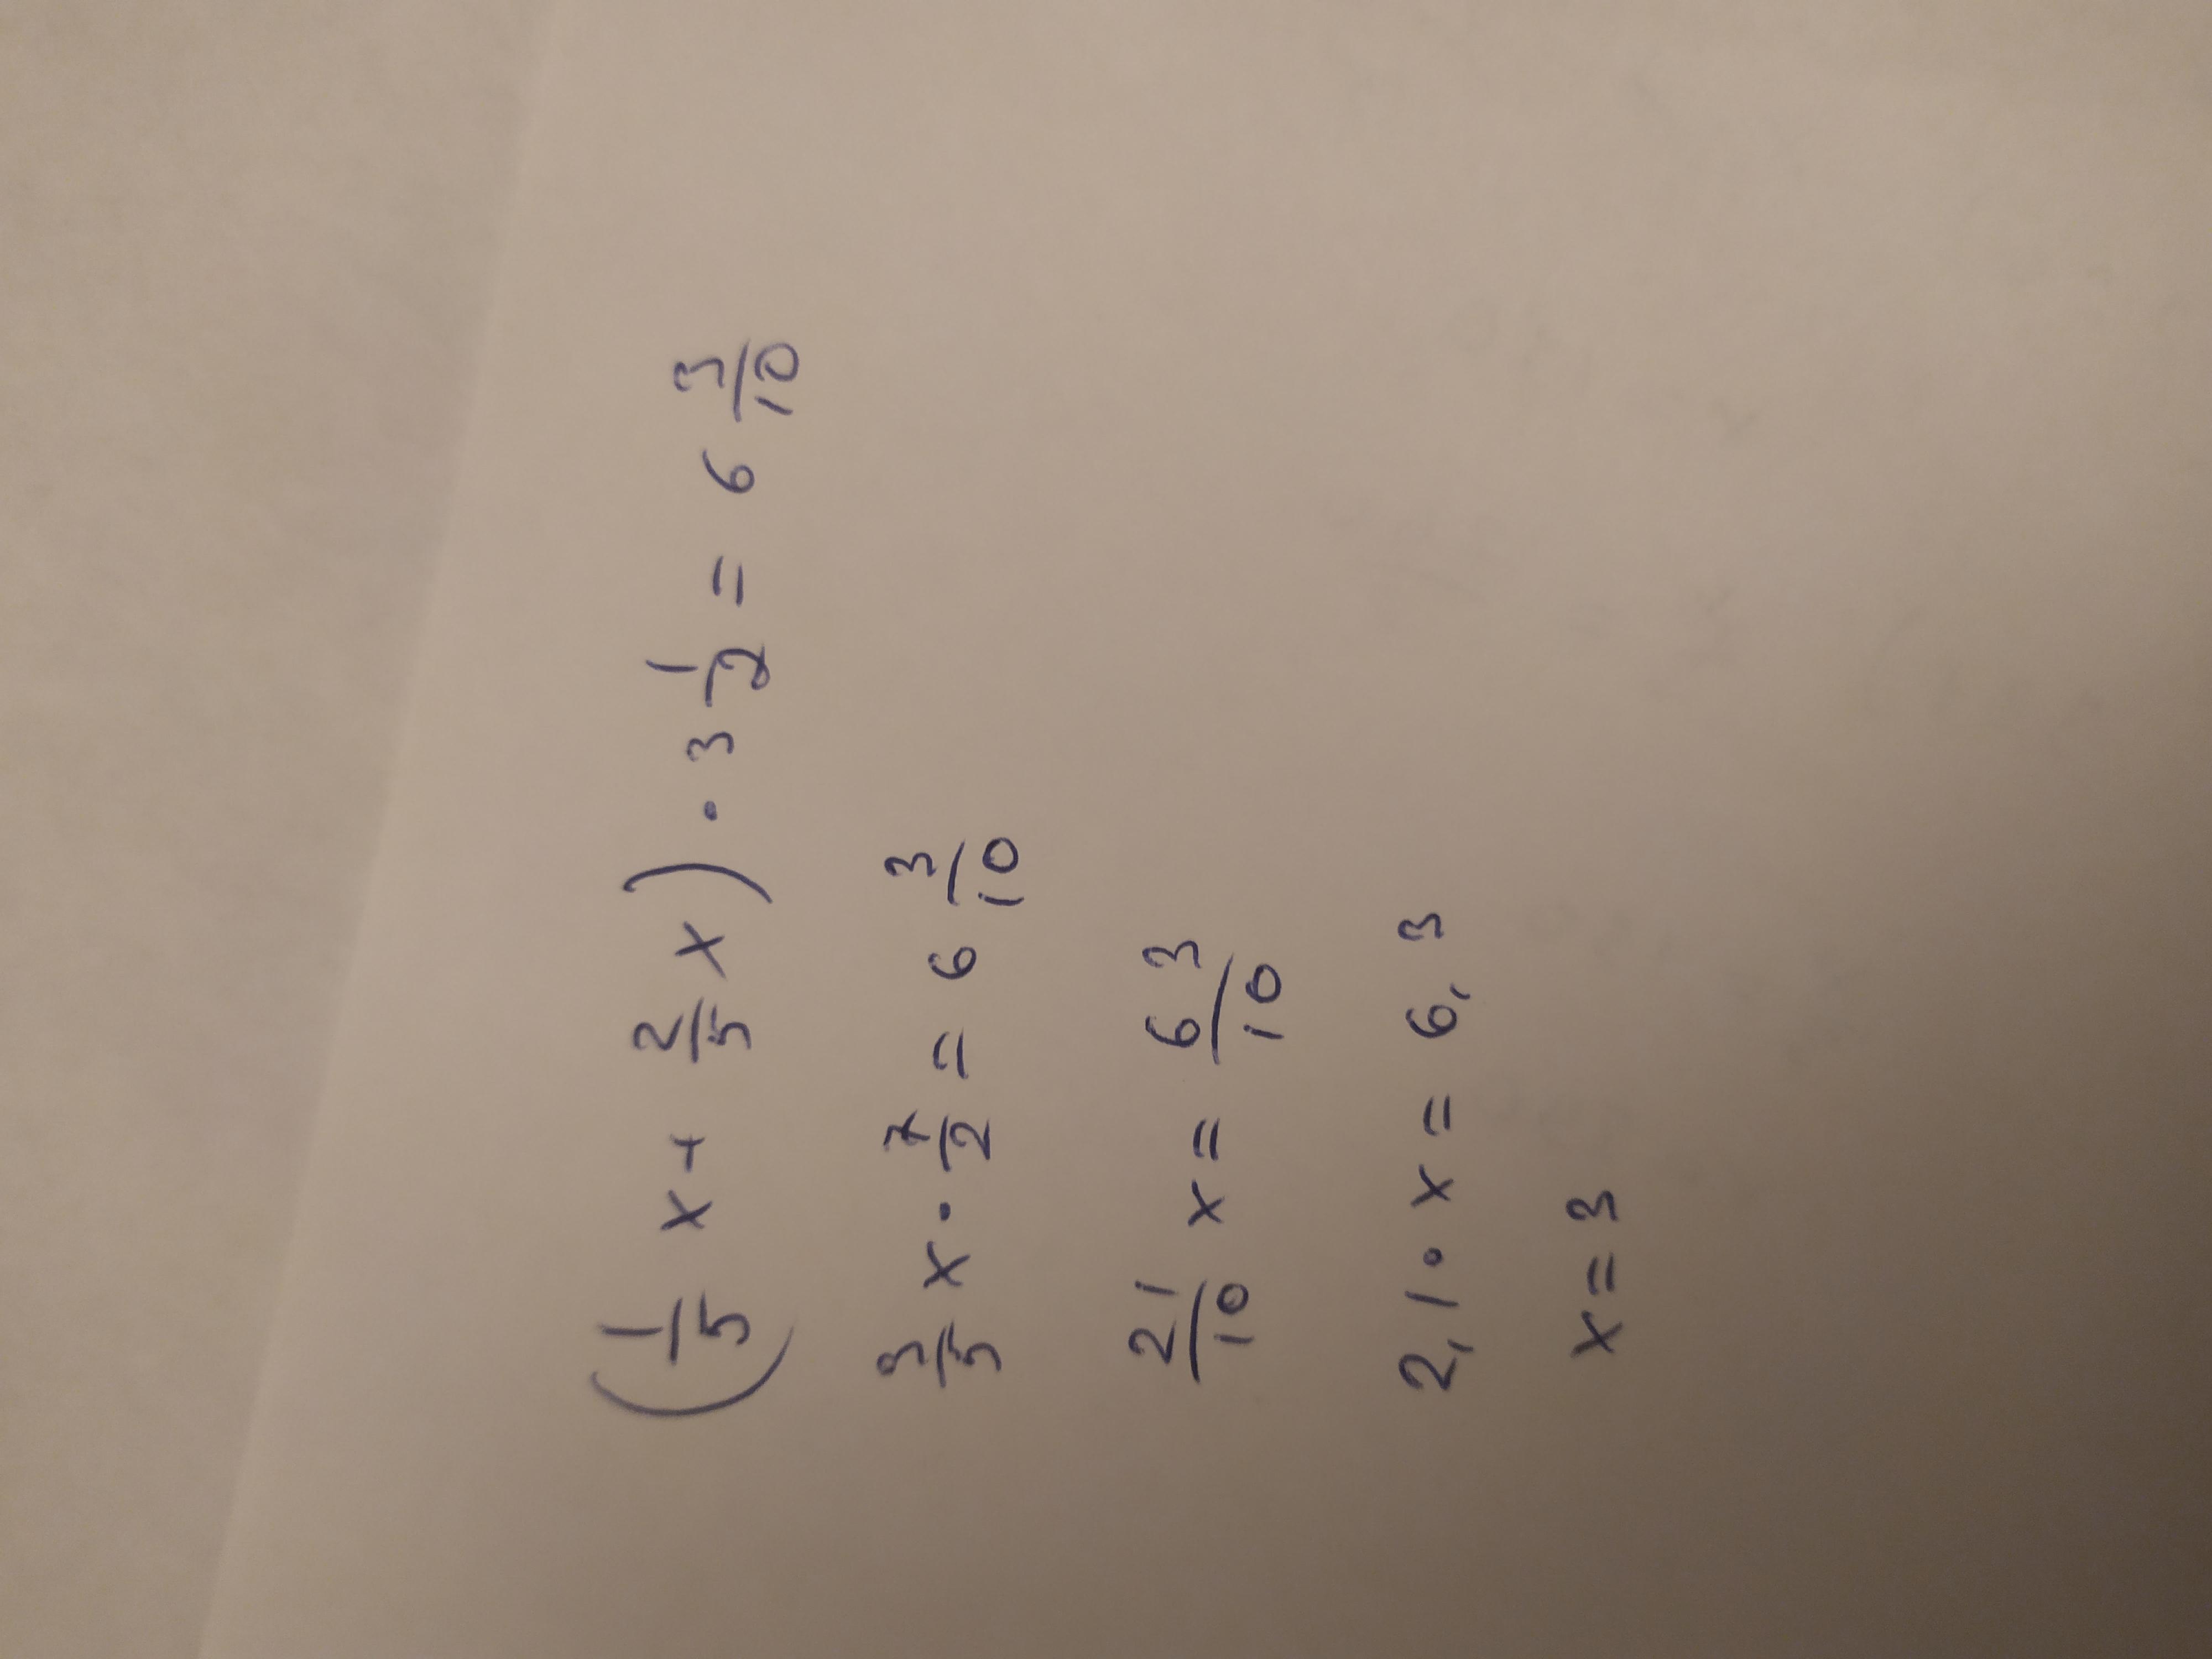 (1/5 x + 2/5 x) · 3 1/2 = 6 3/10
3/5 x · 7/2 = 6 3/10
21/10 x = 63/10
2,1 · x = 6,3
x = 3